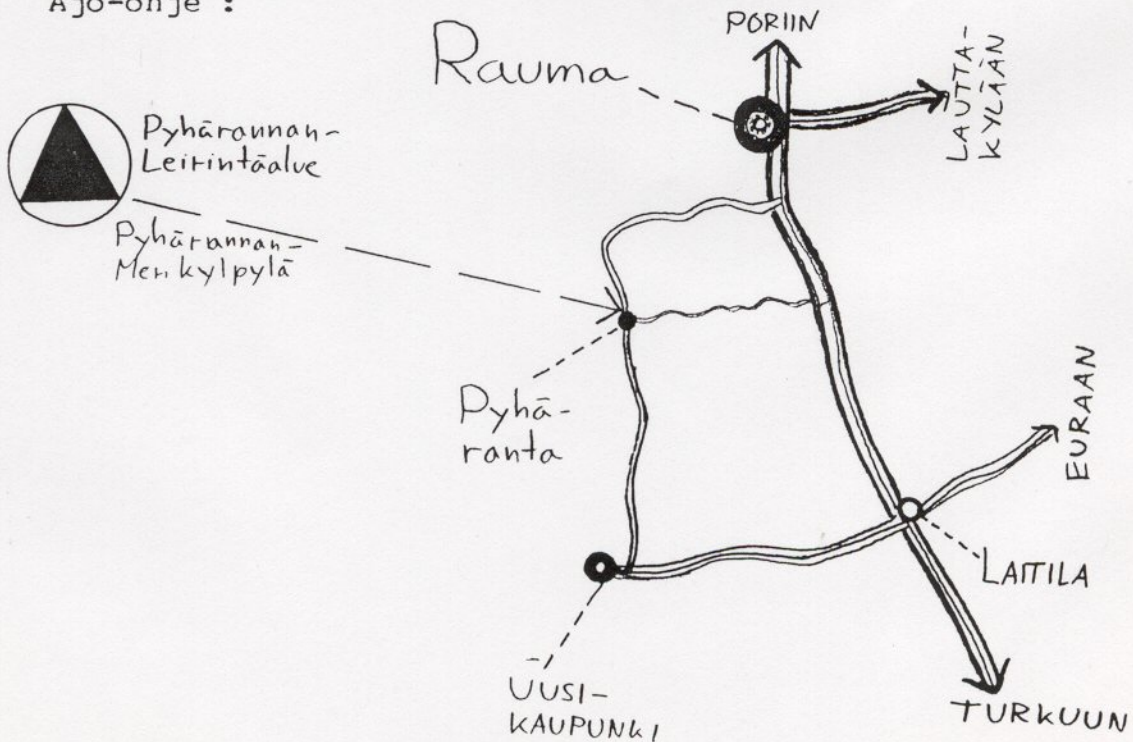 Ajo-ohje :
PORIIN
Rauma
LAUTTA-
KYLÄÄN
Pyhärannan-
Leirintäalue
Pyhärannan-
Merikylpylä
Pyhä-
ranta
EURAAN
LAITILA
UUSI-
KAUPUNKI
TURKUUN